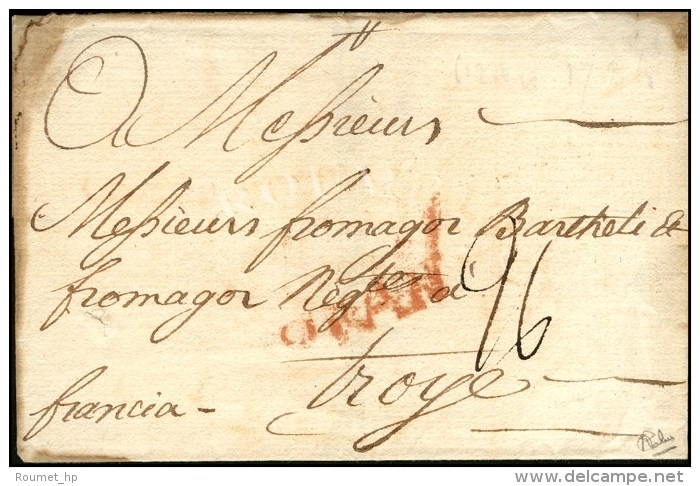 A Messieurs
Messieurs fromagor Bartheli &
fromagor Negtes a
troye
francia -
ORAN
96
Roumet_hp
©delcampe.net